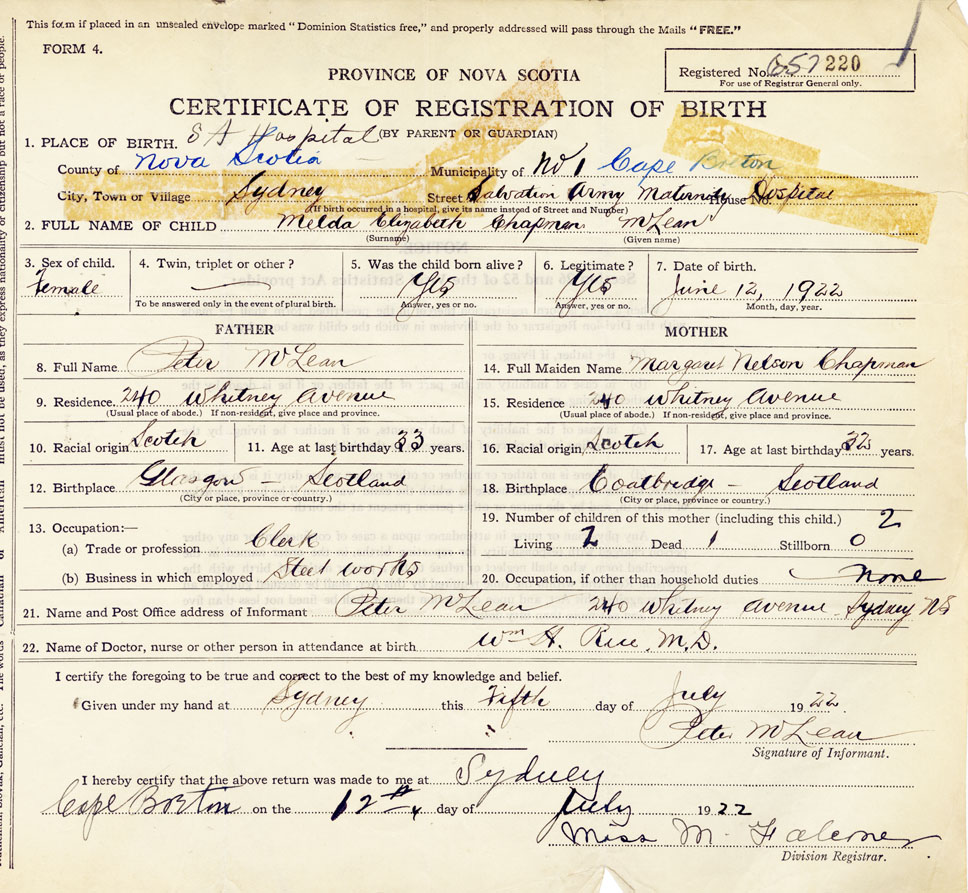 This form if placed in an unsealed envelope marked "Dominion Statistics free," and properly addressed will pass through the Mails "FREE."
FORM 4.
PROVINCE OF NOVA SCOTIA
Registered No. 657 220
For use of Registrar General only.
CERTIFICATE OF REGISTRATION OF BIRTH
(BY PARENT OR GUARDIAN)
1. PLACE OF BIRTH. S A Hospital
County of Nova Scotia Municipality of No 1 Cape Breton
City, Town or Village Sydney Street Salvation Army Maternity House No Hospital
(If birth occurred in a hospital, give its name instead of Street and Number)
2. FULL NAME OF CHILD Melda Elizabeth Chapman McLean
(Surname) (Given name)
3. Sex of child. 4. Twin, triplet or other? 5. Was the child born alive? 6. Legitimate? 7. Date of birth.
Female Yes Yes June 12, 1922
To be answered only in the event of plural birth. Answer, yes or no. Answer, yes or no. Month, day, year.
FATHER
8. Full Name Peter McLean
9. Residence. 240 Whitney Avenue
(Usual place of abode.) If non-resident, give place and province.
10. Racial origin Scotch 11. Age at last birthday 33 years.
12. Birthplace Glasgow - Scotland
(City or place, province or country.)
13. Occupation:—
(a) Trade or profession Clerk
(b) Business in which employed Steel works
MOTHER
14. Full Maiden Name Margaret Nelson Chapman
15. Residence 240 Whitney Avenue
(Usual place of abode.) If non-resident, give place and province.
16. Racial origin Scotch 17. Age at last birthday 32 years.
18. Birthplace Coatbridge - Scotland
(City or place, province or country.)
19. Number of children of this mother (including this child.) 2
Living 2 Dead 1 Stillborn 0
20. Occupation, if other than household duties none
21. Name and Post Office address of Informant Peter McLean 240 Whitney Avenue Sydney NS
22. Name of Doctor, nurse or other person in attendance at birth Wm H. Rice, M.D.
I certify the foregoing to be true and correct to the best of my knowledge and belief.
Given under my hand at Sydney this Fifth day of July 1922.
Peter McLean
Signature of Informant.
I hereby certify that the above return was made to me at Sydney
Cape Breton on the 12th day of July 1922
Miss M. Falconer
Division Registrar.